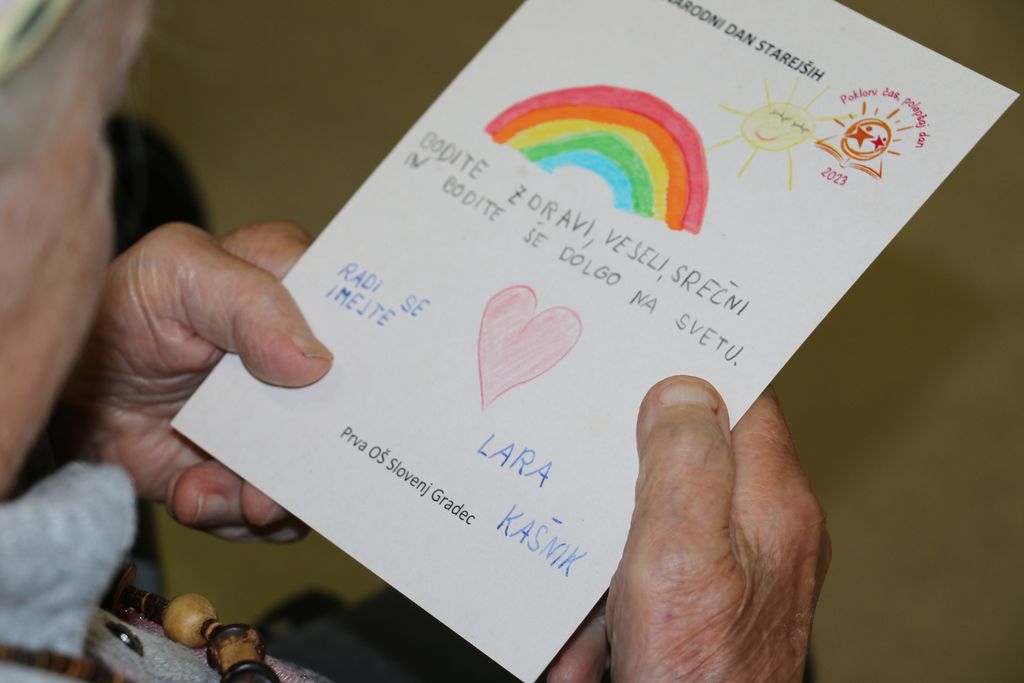 NARODNI DAN STAREJŠIH
Pokloni čas, polepšaj dan
2023
BODITE ZDRAVI, VESELI, SREČNI
IN BODITE ŠE DOLGO NA SVETU.
RADI SE
IMEJTE
LARA
KAŠNIK
Prva OŠ Slovenj Gradec